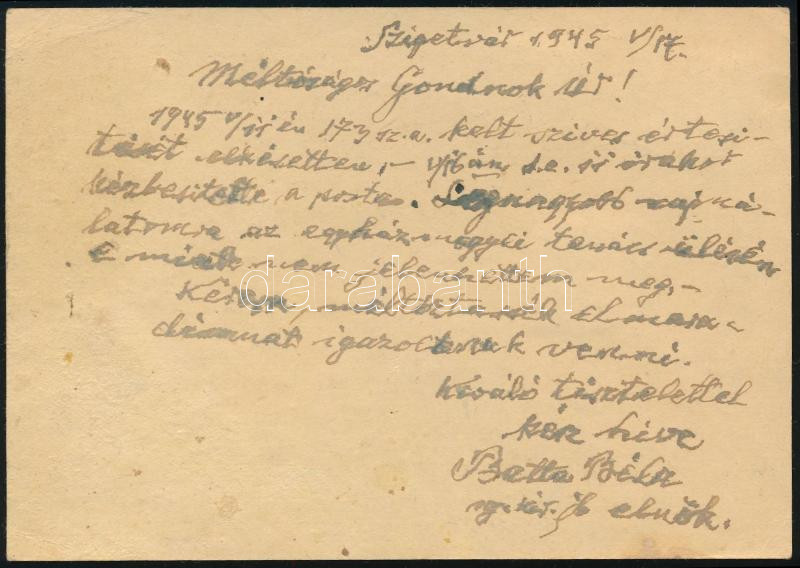 Szigetvár 1945 V/17.
Méltóságos Gondnok Úr!
1945 V/11 én 173 sz. a. kelt szives értesi-
tését elkésetten, – V/16 án d.e. 11 órakor
kézbesitette a posta. Legnagyobb sajná-
latomra az egyházmegyei tanács ülésén
e miatt nem jelenhettem meg, –
Kérem, méltóztassék elmara-
dásomat igazoltnak venni.
Kiváló tisztelettel
kész hive
Batta Béla
ny. kir. jb elnök.
darabanth